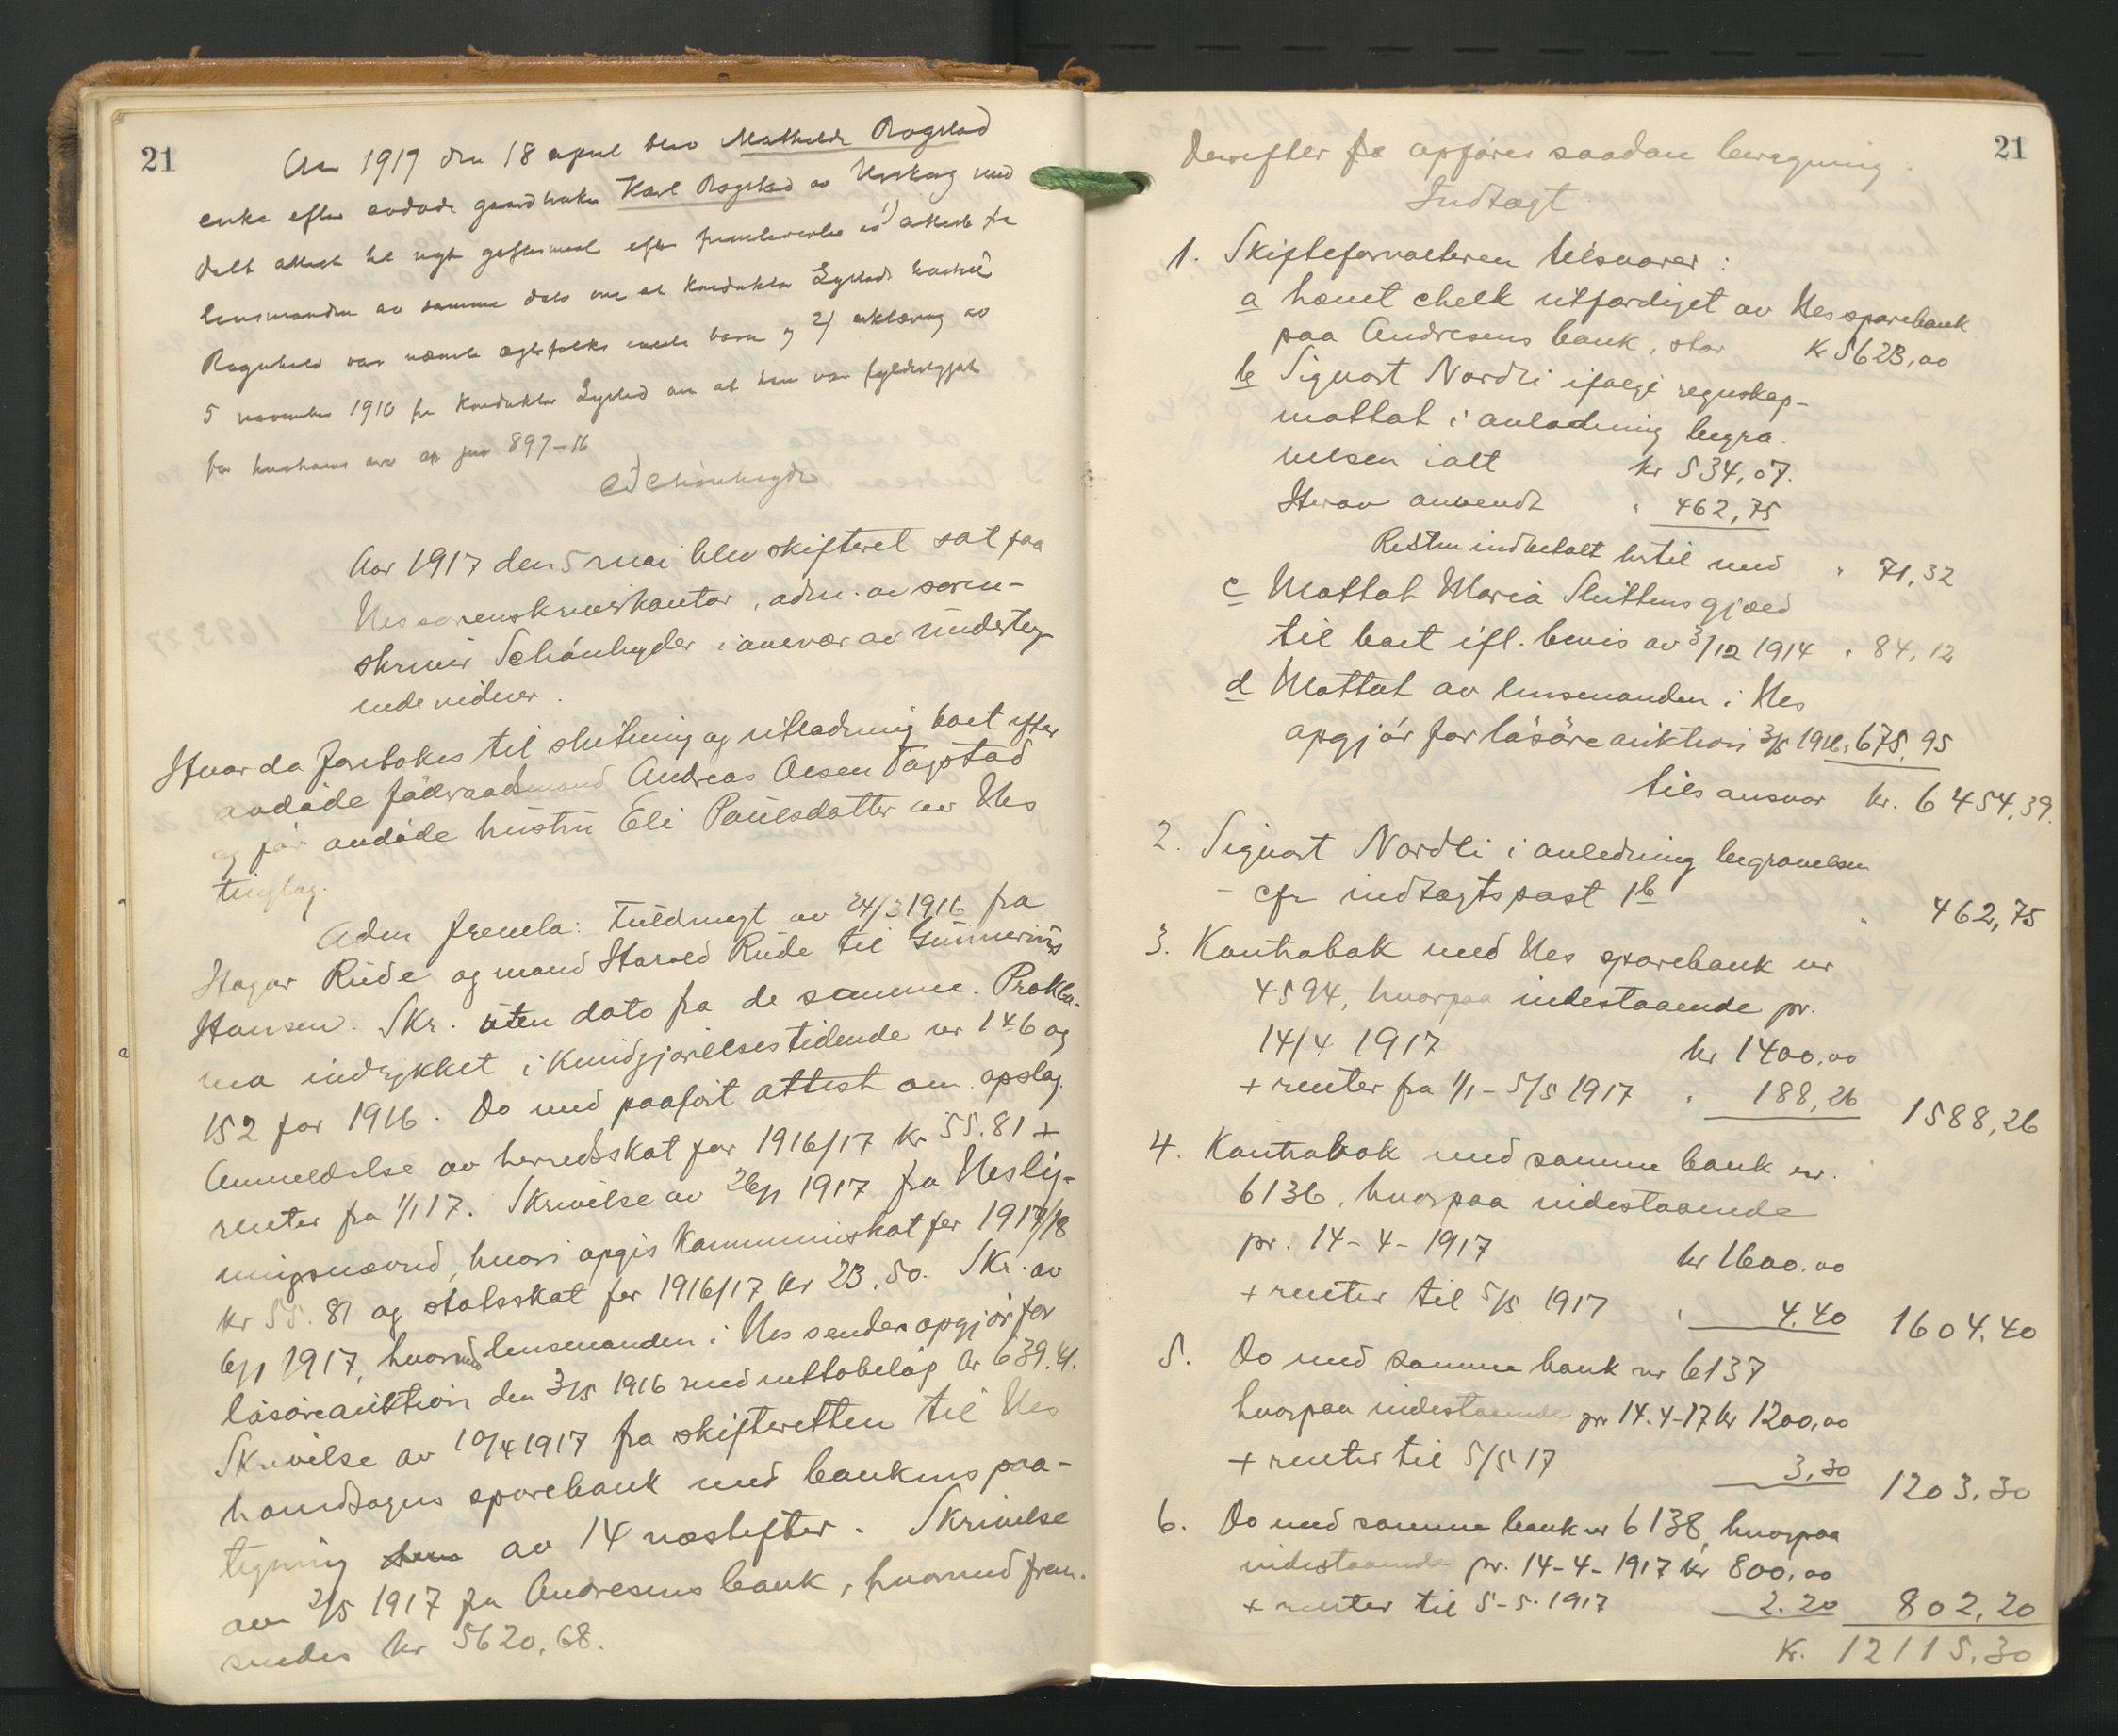 21
Aar 1917 den 18 april blev Mathilde Rogstad
enke efter avdøde gaardbruker Karl Rogstad av Urskog med
delt attest til nyt giftermaal efter fremleverelse av 1) attest fra
lensmanden av samme dato om at Konduktør Lystads hustru
Ragnhild var nævnte egtefolks eneste barn og 2) erklæring av
5 november 1910 fra Konduktør Lystad om at han var fyldestgjort
for hustruens arv cfr jnr 897-16
Aar 1917 den 5 mai blev skifteret sat paa
Nes sorenskriverkontor, adm. av soren-
skriver Schönheyder i overvær av underteg-
nede vidner.
Hvorda foretokes til slutning og utlodning boet efter
avdøde föderaadsmand Andreas Olsen Tagstad
og før avdøde hustru Eli Paulsdatter av Nes
tinglag.
Adm fremla: Fuldmagt av 24/3 1916 fra
Hagar Rude og mand Harald Rude til Gunnerius
Hansen. Skr. uten dato fra de samme. Prokla-
ma indrykket i Kundgjørelsestidende nr 146 og
152 for 1916. Do med paaført attest om opslag.
Anmeldelse av herredsskat for 1916/17 kr 55.81 +
renter fra 1/1 17. Skrivelse av 26/1 1917 fra Nes lig-
ningsnævnd, hvori opgis Kommuneskat for 1917/18
kr 55.81 og statsskat for 1916/17 kr 23.50. Skr. av
6/1 1917, hvormed lensmanden i Nes sender opgjør for
løsøreauktion den 3/5 1916 med nettobeløp kr 639.41.
Skrivelse av 10/4 1917 fra skifteretten til Nes
hovedsogns sparebank med bankens paa-
tegning av 14 næstefter. Skrivelse
av 2/5 1917 fra Andresens bank, hvormed frem-
sendes kr 5620,68.
21
Derefter opføres saadan beregning
Indtægt
1. Skifteforvalteren tilsvarer:
a hævet chek utfærdiget av Nes sparebank
paa Andresens bank, stor Kr 5623,00
b Sigvart Nordli ifølge regnskap
mottat i anledning begra-
velsen ialt kr 534,07.
Herav anvendt " 462,75
Resten indbetalt hertil med " 71,32
c Mottat Maria Sluttens gjæld
til boet ifl. bevis av 3/12 1914 " 84,12
d Mottat av lensmanden i Nes
opgjør for løsøreauktion 3/5 1916 " 675.95
tils ansvar kr. 6454,39.
2. Sigvart Nordli i anledning begravelsen
- cfr indtægtspost 1b " 462,75
3. Kontrabok med Nes sparebank nr
4594, hvorpaa indestaaende pr.
14/4 1917 kr 1400,00
+ renter fra 1/1 - 5/5 1917 " 188,26 1588,26
4. Kontrabok med samme bank nr.
6136, hvorpaa indestaaende
pr. 14-4-1917 kr 1600.00
+ renter til 5/5 1917 " 4.40 1604.40
5. Do med samme bank nr 6137
hvorpaa indestaaende pr 14.4-17 kr 1200,00
+ renter til 5/5 17 3,30 1203.30
6. Do med samme bank nr 6138, hvorpaa
indestaaende pr. 14-4-1917 kr 800,00
+ renter til 5-5-1917 2.20 802,20
Kr. 12115,30